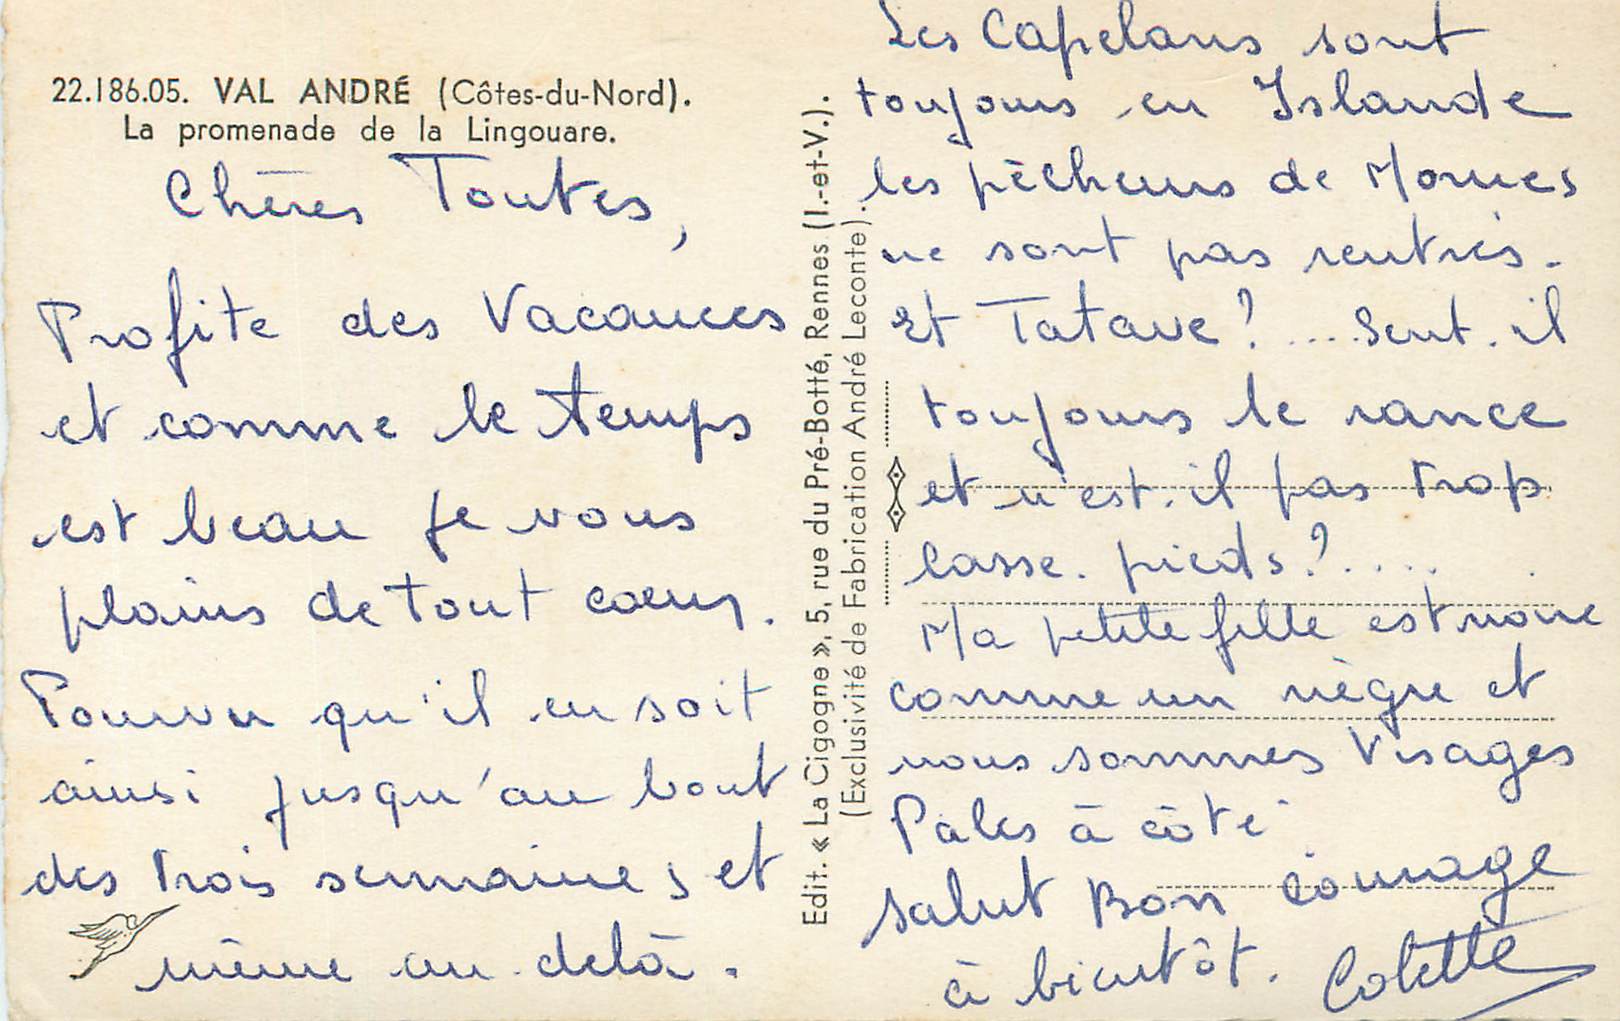 22.186.05. VAL ANDRÉ (Côtes-du-Nord).
La promenade de la Lingouare.
Chères Toutes,
Profite des Vacances
et comme le temps
est beau je vous
plains de tout coeur.
Pourvu qu'il en soit
ainsi jusqu'au bout
des trois semaines et
même au delà.
Edit. « La Cigogne », 5, rue du Pré-Botté, Rennes (I.-et-V.).
(Exclusivité de Fabrication André Leconte).
Les Capelans sont
toujours en Islande
les pêcheurs de Morues
ne sont pas rentrés.
Et Tatave ? .... Sent-il
toujours le rance
et n'est-il pas trop
casse-pieds ? ....
Ma petite fille est noire
comme un nègre et
nous sommes Visages
Pales à côté
Salut Bon courage
à bientôt. Colette